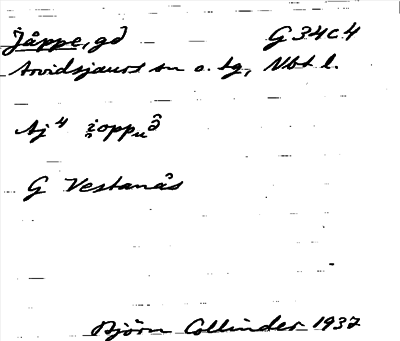 Jåppe, gd G 34c4
Arvidsjaurs sn o. tg, Nbt l.
Aj 4
G Vestanås
Björn Collinder 1937